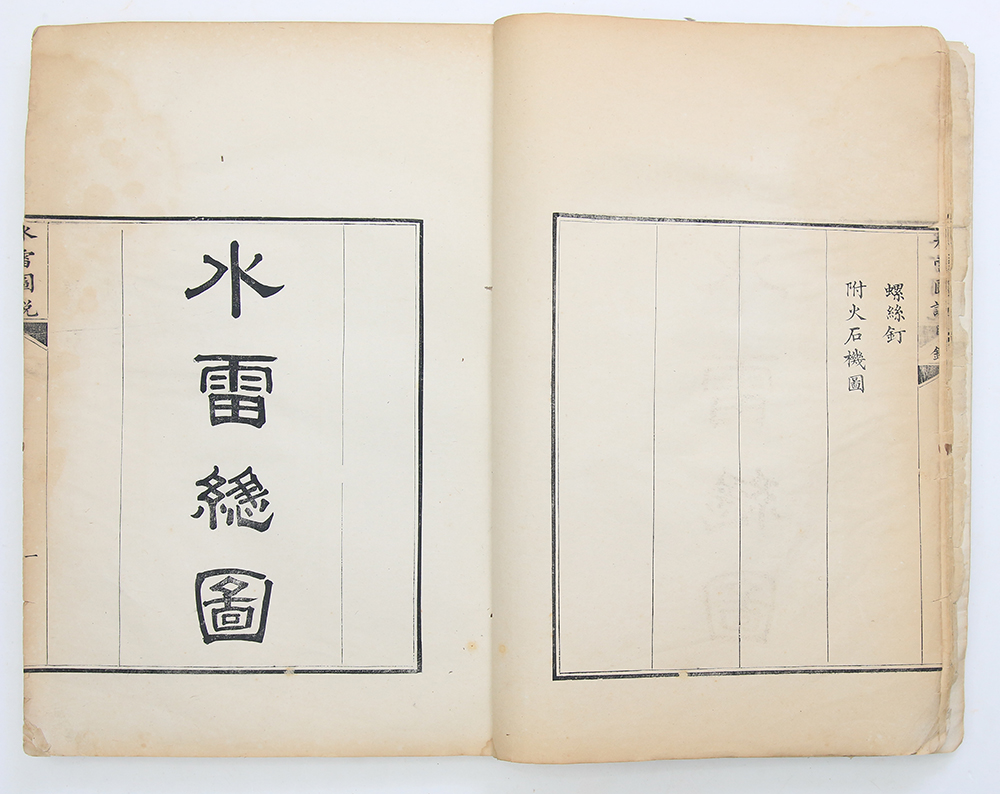 水雷圖說目錄
螺絲釘
附火石機圖
水雷總圖
水雷圖說
一